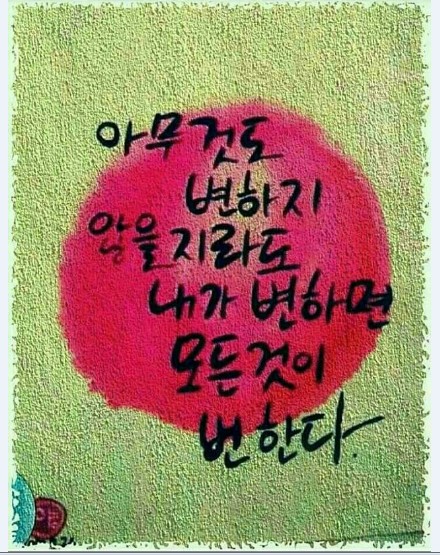 아무것도
변하지
않을지라도
내가 변하면
모든것이
변한다.